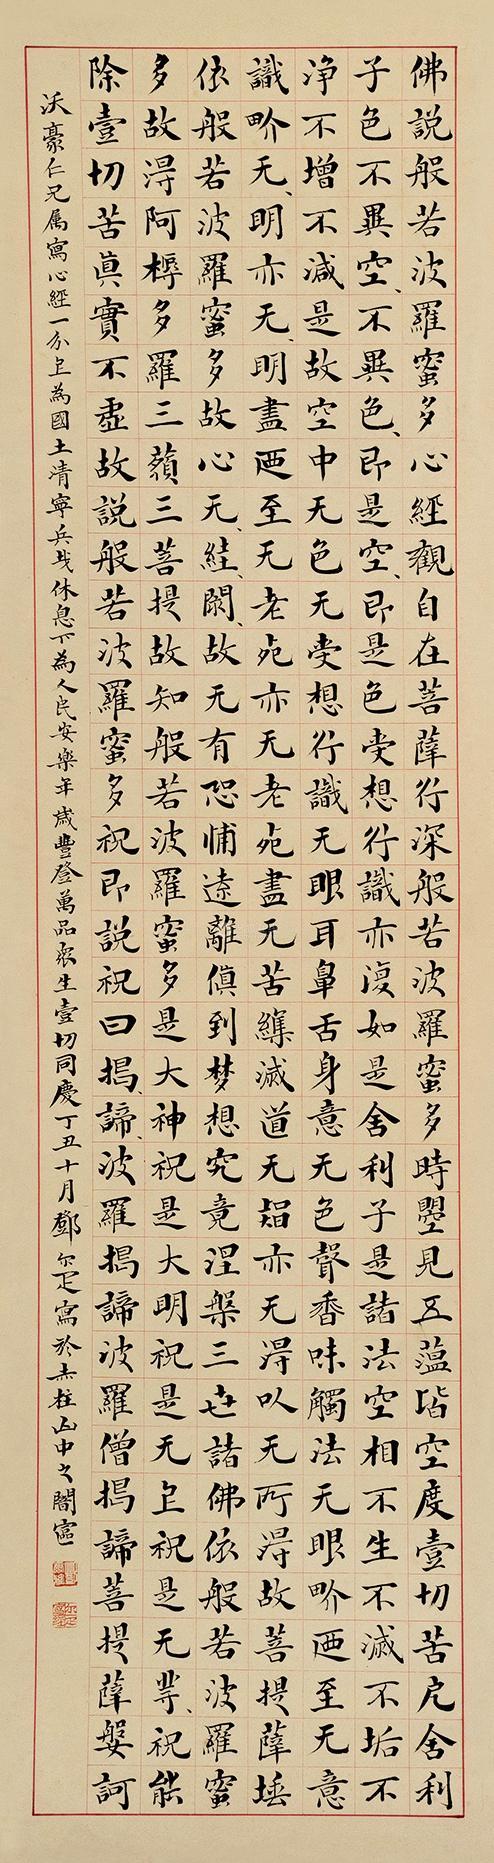 佛説般若波羅蜜多心經觀自在菩薩行深般若波羅蜜多時曌見五藴皆空度壹切苦戹舍利
子色不異空不異色即是空即是色受想行識亦復如是舍利子是諸法空相不生不滅不垢不
淨不增不減是故空中无色无受想行識无眼耳鼻舌身意无色聲香味觸法无眼界迺至无意
識界无明亦无明盡迺至无老死亦无老死盡无苦集滅道无智亦无得以无所得故菩提薩埵
依般若波羅蜜多故心无絓閡故无有恐怖遠離傎到梦想究竟涅槃三世諸佛依般若波羅蜜
多故得阿耨多羅三藐三菩提故知般若波羅蜜多是大神祝是大明祝是无上祝是无等祝能
除壹切苦眞實不虛故説般若波羅蜜多祝即説祝曰揭諦波羅揭諦波羅僧揭諦菩提薩婆訶
沃豪仁兄属寫心經一分上為國土清寧兵戈休息下為人民安樂年歲豐登萬品衆生壹切同慶丁丑十月鄧尔疋寫於赤柱山中之闇寍